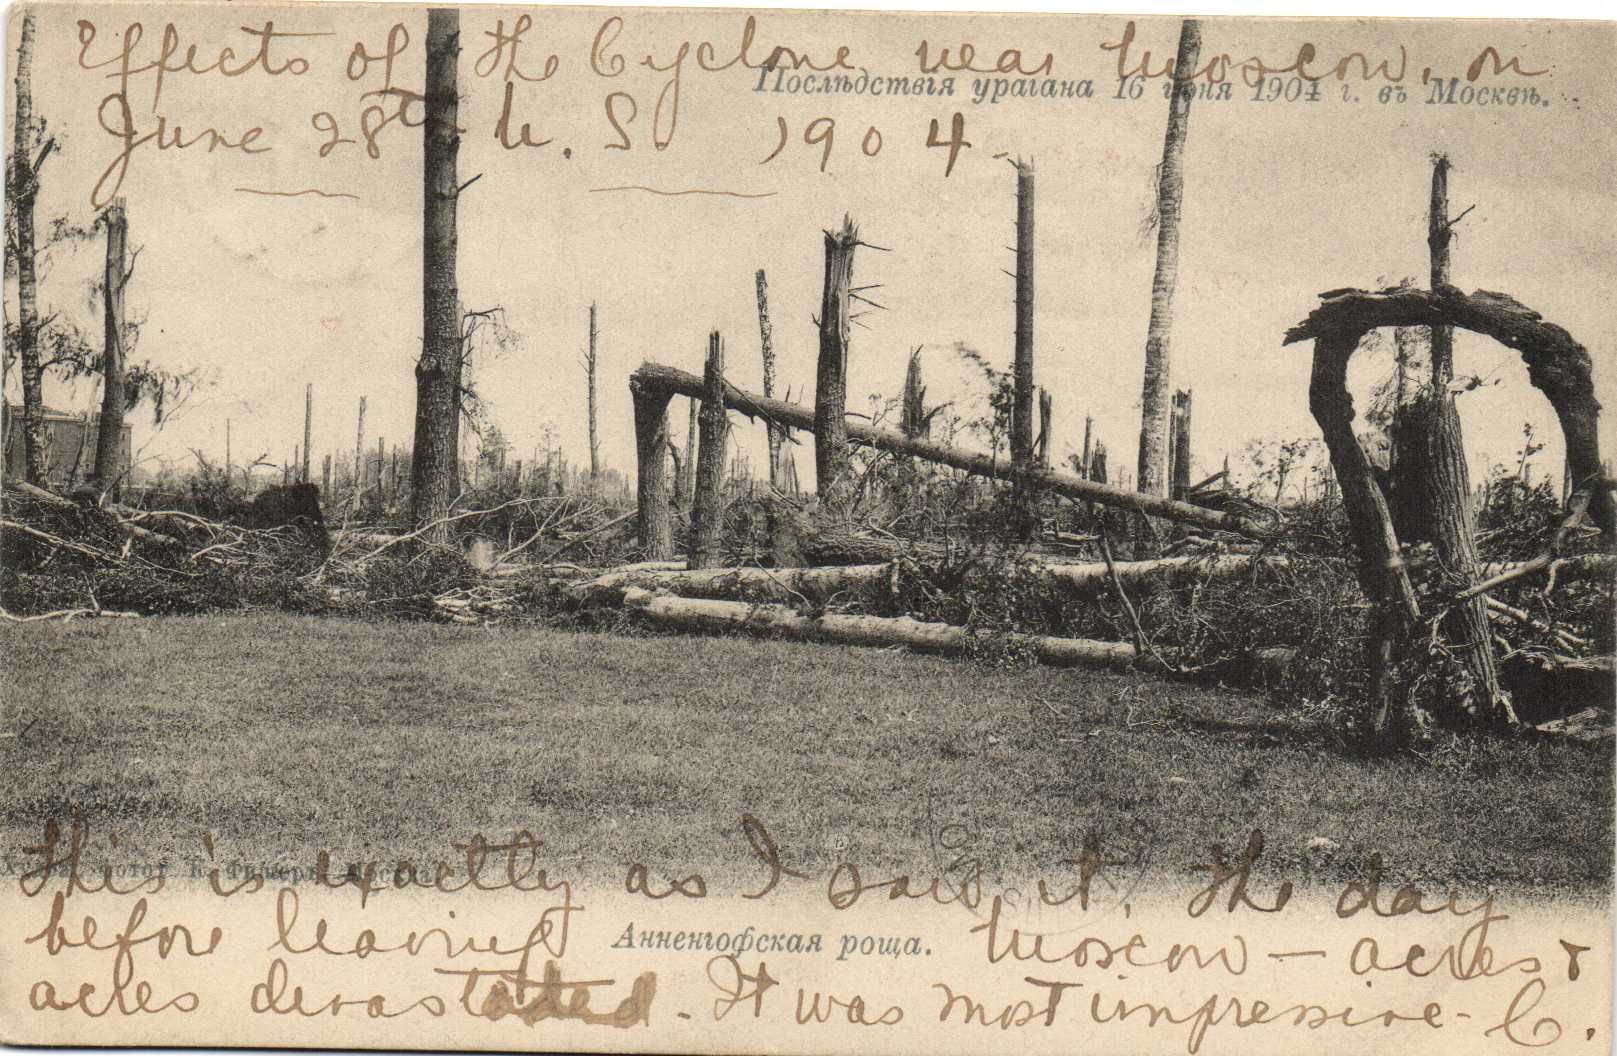 Effects of the Cyclone near Moscow, on
Послѣдствія урагана 16 іюня 1904 г. въ Москвѣ.
June 28th N. S. 1904.
This is exactly as I saw it, the day
Худож. фотот. К. Фишеръ, Москва
before leaving Moscow — acres &
Анненгофская роща.
acres devastated. It was most impressive - C.